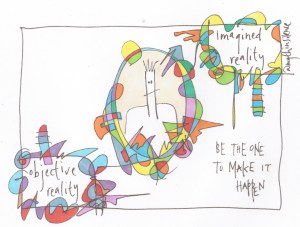 imagined
reality
objective
reality
BE THE ONE
TO MAKE IT
HAPPEN